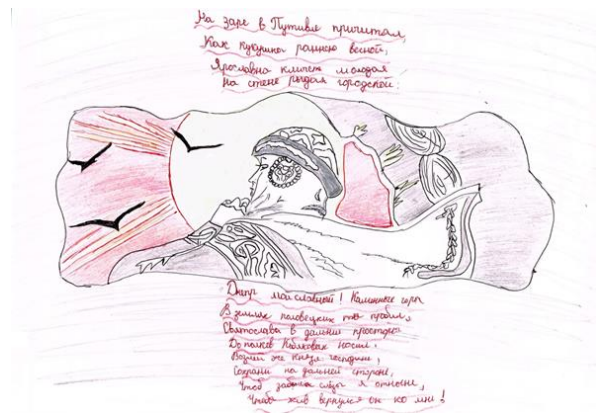 На заре в Путивле причитая,
Как кукушка раннею весной,
Ярославна кличет молодая
На стене рыдая городской:
Днепр мой славный! Каменные горы
В землях половецких ты пробил,
Святослава в дальние просторы
До полков Кобяковых носил.
Возлелей же князя, господин,
Сохрани на дальней стороне,
Чтоб забыла слёзы я отныне,
Чтобы жив вернулся он ко мне!